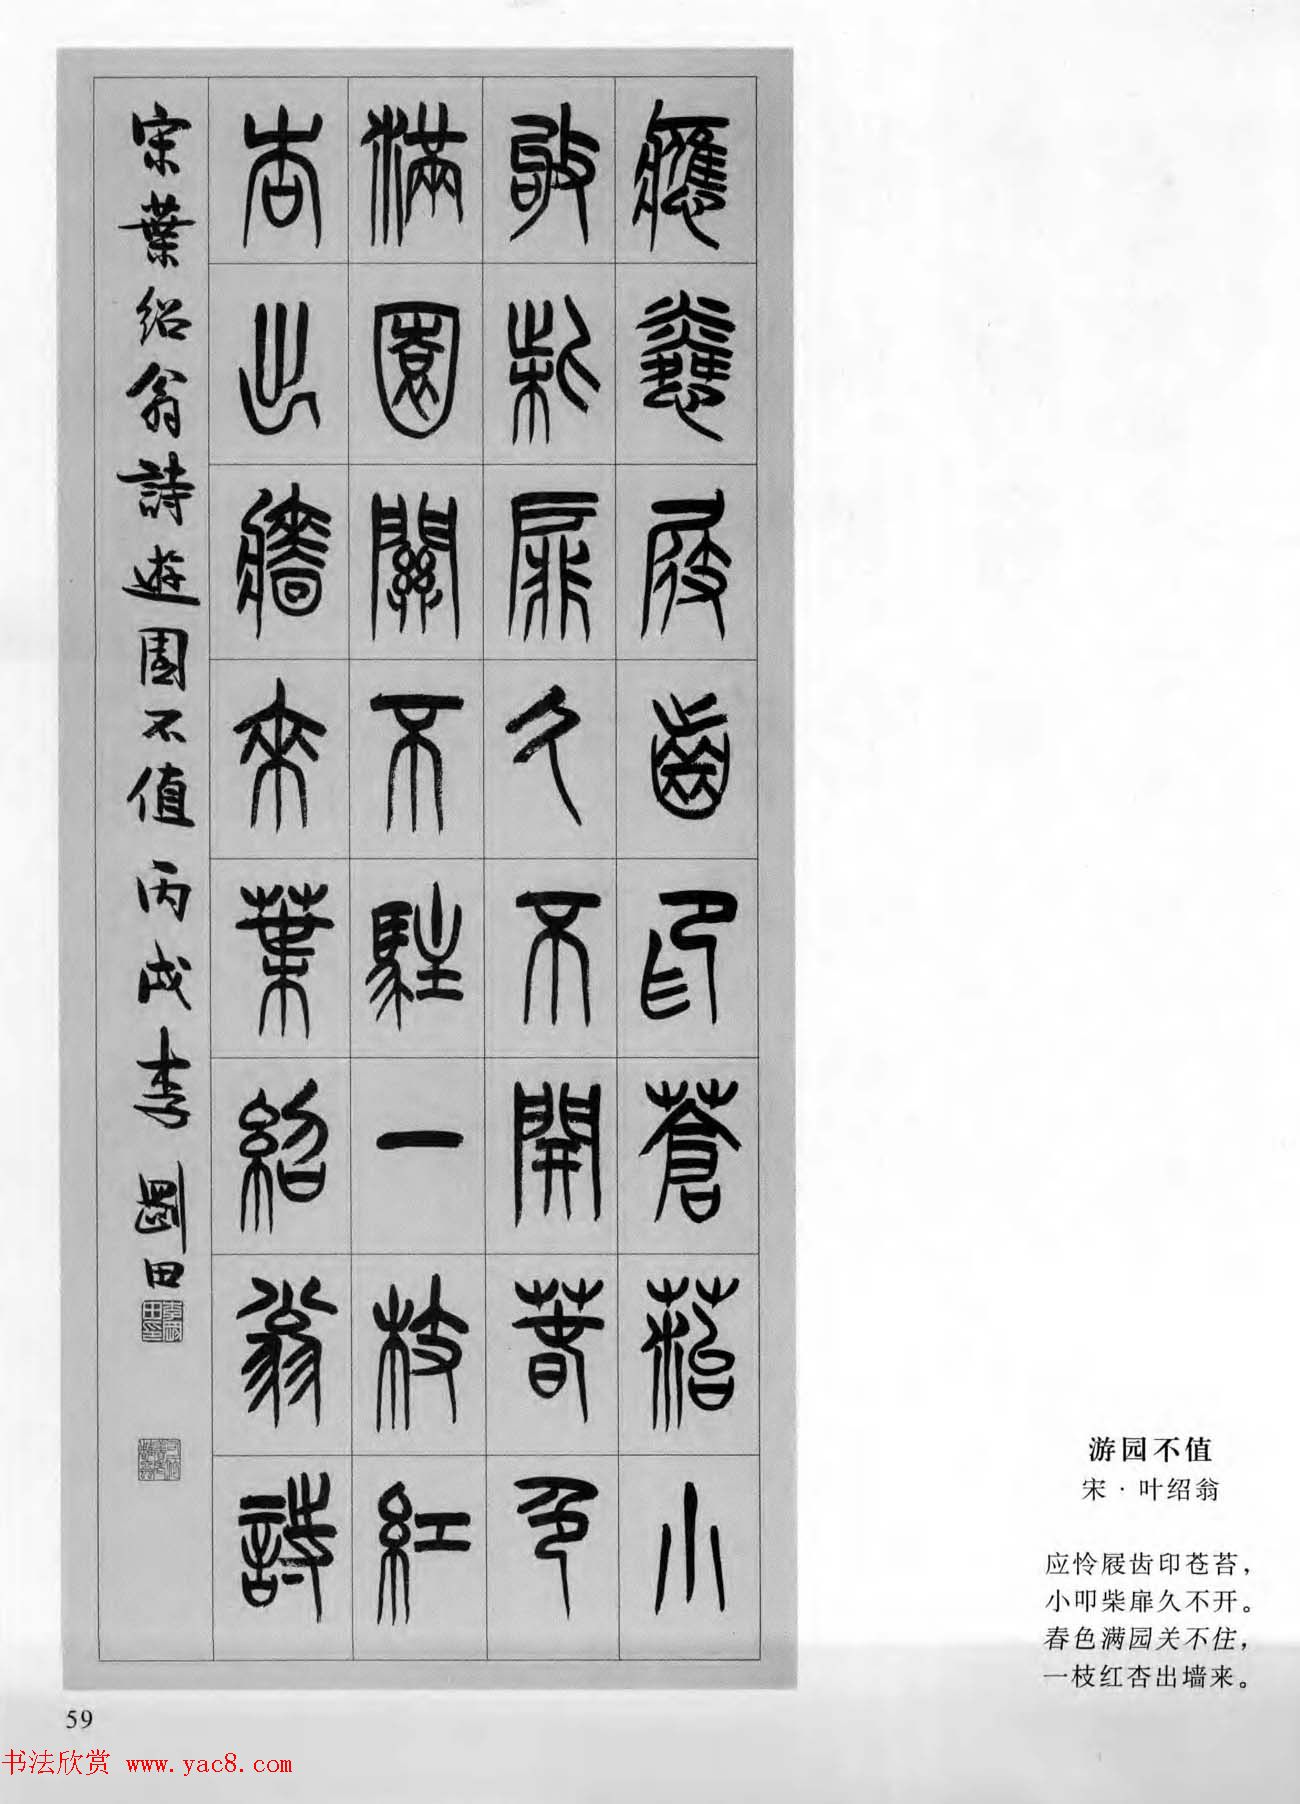 應憐屐齒印蒼苔小
敂柴扉久不開萅色
滿園關不駐一枝紅
杏出牆來葉紹翁詩
宋葉紹翁詩遊園不值丙戌李剛田
游园不值
宋·叶绍翁
应怜屐齿印苍苔，
小叩柴扉久不开。
春色满园关不住，
一枝红杏出墙来。
59
书法欣赏 www.yac8.com